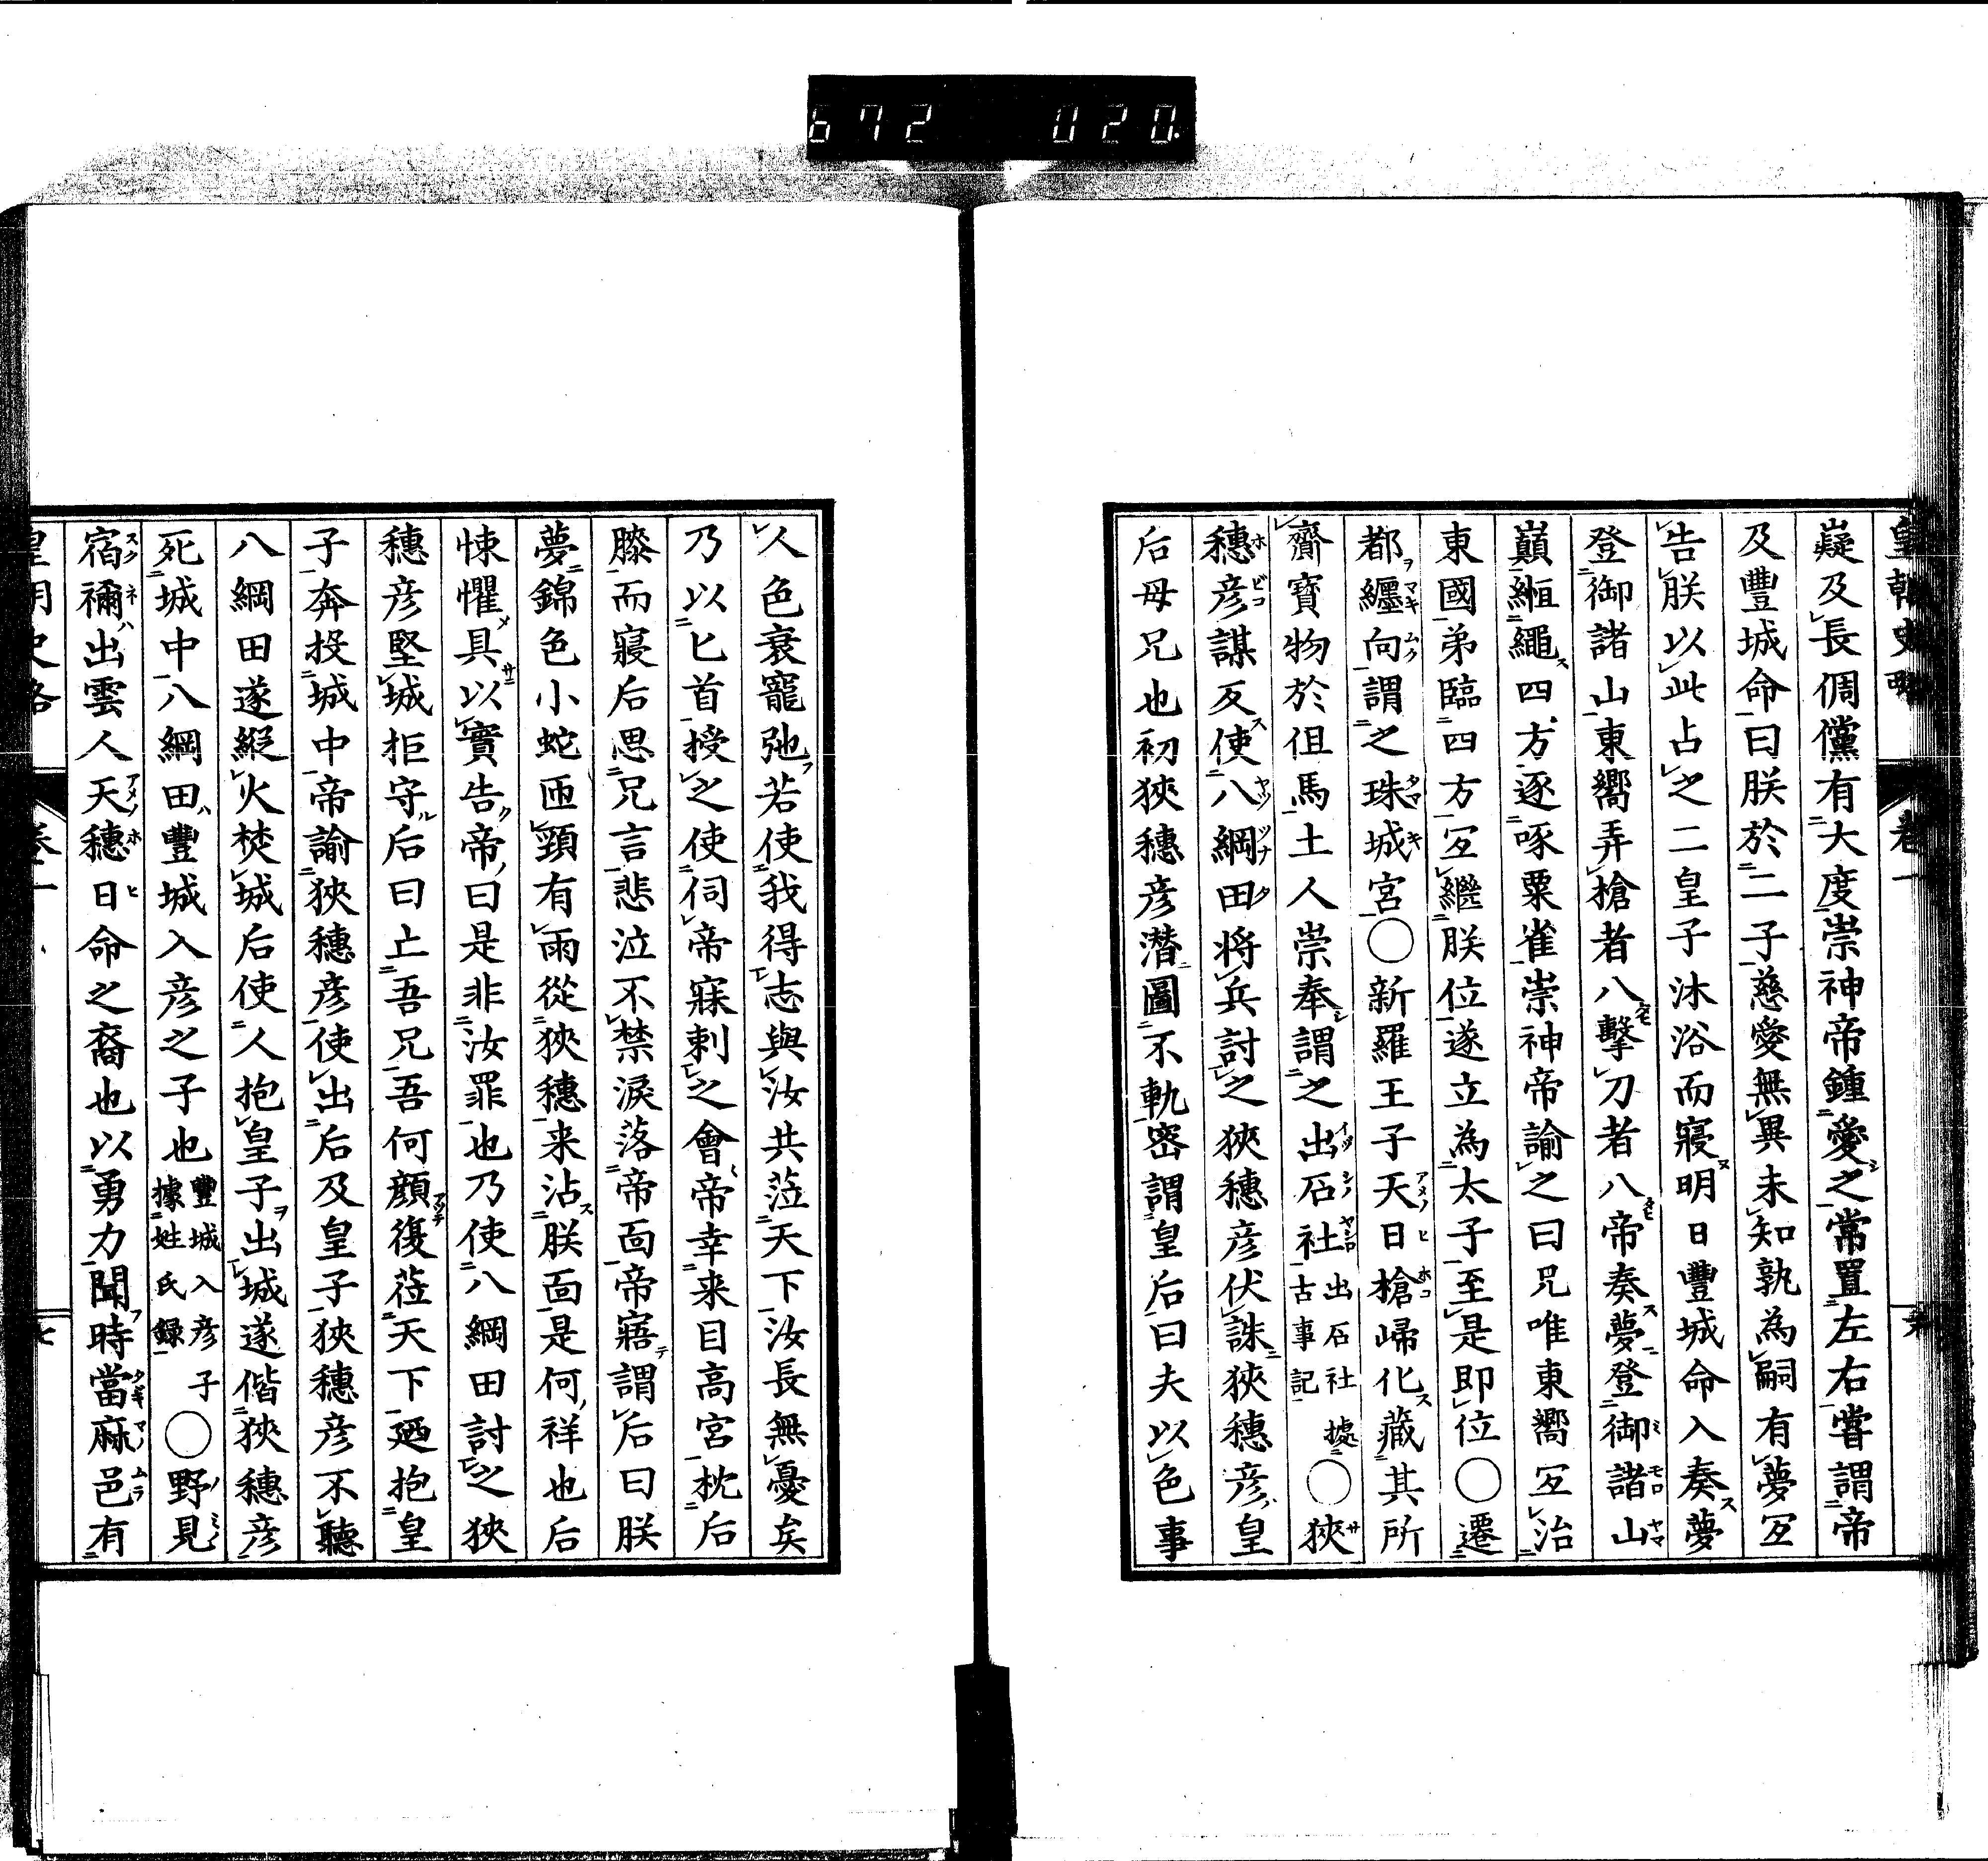 672 020.
皇朝史略 卷一
嶷及長倜儻有大度崇神帝鍾愛之常置左右嘗謂帝
及豐城命曰朕於二子慈愛無異未知孰為嗣有夢宜
告朕以此占之二皇子沐浴而寢明日豐城命入奏夢
登御諸山東嚮弄槍者八擊刀者八帝奏夢登御諸山
巔縆繩四方逐啄粟雀崇神帝諭之曰兄唯東嚮宜治
東國弟臨四方宜繼朕位遂立為太子至是即位〇遷
都纏向謂之珠城宮〇新羅王子天日槍歸化藏其所
齎寶物於但馬土人崇奉謂之出石社出石社據古事記〇狹
穗彥謀反使八綱田將兵討之狹穗彥伏誅狹穗彥皇
后母兄也初狹穗彥潛圖不軌密謂皇后曰夫以色事
人色衰寵弛若使我得志與汝共蒞天下汝長無憂矣
乃以匕首授之使伺帝寐刺之會帝幸来目高宮枕后
膝而寢后思兄言悲泣不禁淚落帝面帝寤謂后曰朕
夢錦色小蛇匝頸有雨從狹穗来沾朕面是何祥也后
悚懼具以實告帝曰是非汝罪也乃使八綱田討之狹
穗彥堅城拒守后曰亡吾兄吾何顏復蒞天下廼抱皇
子奔投城中帝諭狹穗彥使出后及皇子狹穗彥不聽
八綱田遂縱火焚城后使人抱皇子出城遂偕狹穗彥
死城中八綱田豐城入彥之子也豐城入彥子據姓氏録〇野見
宿禰出雲人天穗日命之裔也以勇力聞時當麻邑有
皇朝史略 卷一 七